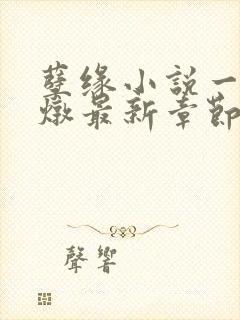 孽缘小說一
燉最新章節
聲響